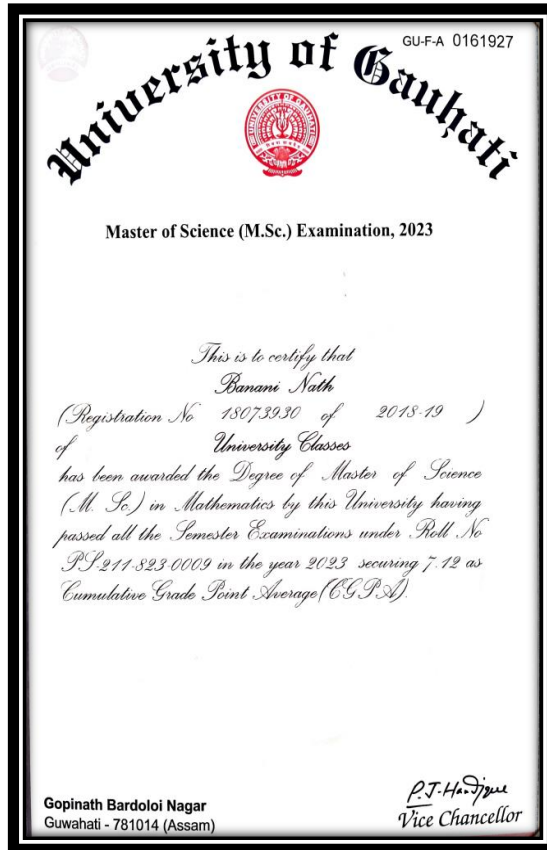 GU-F-A 0161927
University of Gauhati
UNIVERSITY OF GAUHATI
Master of Science (M.Sc.) Examination, 2023
This is to certify that
Banani Nath
(Registration No 18073930 of 2018-19 )
of University Classes
has been awarded the Degree of Master of Science
(M. Sc.) in Mathematics by this University having
passed all the Semester Examinations under Roll No
PS-211-823-0009 in the year 2023 securing 7.12 as
Cumulative Grade Point Average(CGPA).
P.J. Handique
Gopinath Bardoloi Nagar
Guwahati - 781014 (Assam)
Vice Chancellor